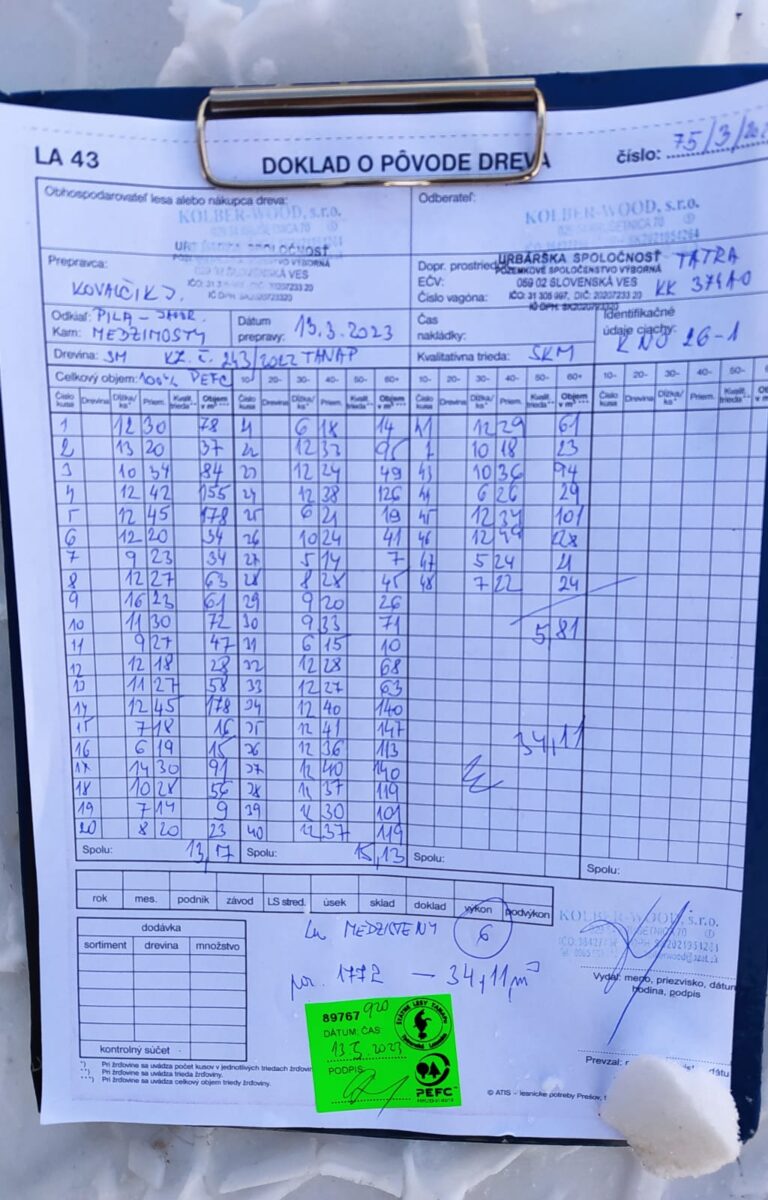 LA 43
DOKLAD O PÔVODE DREVA
číslo: 75/3/202
Obhospodarovateľ lesa alebo nákupca dreva:
KOLBER-WOOD, s.r.o.
Odberateľ:
KOLBER-WOOD, s.r.o.
Prepravca:
KOVALČIK J.
059 02 SLOVENSKÁ VES
Dopr. prostriedok
URBÁRSKA SPOLOČNOSŤ
POZEMKOVÉ SPOLOČENSTVO VÝBORNÁ
TATRA
EČV:
059 02 SLOVENSKÁ VES
Číslo vagóna:
Odkiaľ: PILA -
Kam: MEDZIMOSTY
Dátum prepravy: 13.3.2023
Čas nakládky:
Identifikačné údaje ciachy: 26-1
Drevina: SM KZ. Č. 243/2022 TANAP
Kvalitatívna trieda: SKM
Celkový objem: 100% PEFC
10- 20- 30- 40- 50- 60+
10- 20- 30- 40- 50- 60+
10- 20- 30- 40- 50-
Číslo kusa Drevina Dĺžka/ks* Priem. Kvalit. trieda** Objem v m³***
1 12 30 78
2 13 20 37
3 10 34 84
4 12 42 155
5 12 45 178
6 12 20 34
7 9 23 34
8 12 27 63
9 16 23 61
10 11 30 72
11 9 27 47
12 12 18 28
13 11 27 58
14 12 45 178
15 7 18 16
16 6 19 15
17 14 30 91
18 10 28 56
19 7 14 9
20 8 20 23
Spolu: 13,17
6 18 14
12 24 49
24 12 38 126
25 6 21 19
26 10 24 41
27 5 14 7
28 8 28 45
29 9 20 26
30 9 33 71
31 6 15 10
32 12 28 68
33 12 27 63
34 12 40 140
35 12 41 147
36 12 36 113
37 12 40 140
38 12 37 119
39 30 101
40 12 37 119
Spolu: 15,13
41 12 29 61
10 18 23
43 10 36 94
44 6 26 29
45 12 34 101
46 12
47 5 24 21
48 7 22 24
5,81
34,11
Spolu:
Spolu:
rok mes. podnik závod LS stred. úsek sklad doklad výkon podvýkon
dodávka
sortiment drevina množstvo
kontrolný súčet
MEDZISTENY 6
por. 1772 — 34,11 m³
KOLBER-WOOD, s.r.o.
Vydal: meno, priezvisko, dátum
hodina, podpis
89767 920
DÁTUM: ČAS:
13.3.2023
PODPIS
ŠTÁTNE LESY TANAPU
PEFC
Prevzal:
*) Pri žrďovine sa uvádza počet kusov v jednotlivých triedach žrďoviny
**) Pri žrďovine sa uvádza trieda žrďoviny.
***) Pri žrďovine sa uvádza celkový objem triedy žrďoviny.
© ATIS – lesnícke potreby Prešov,